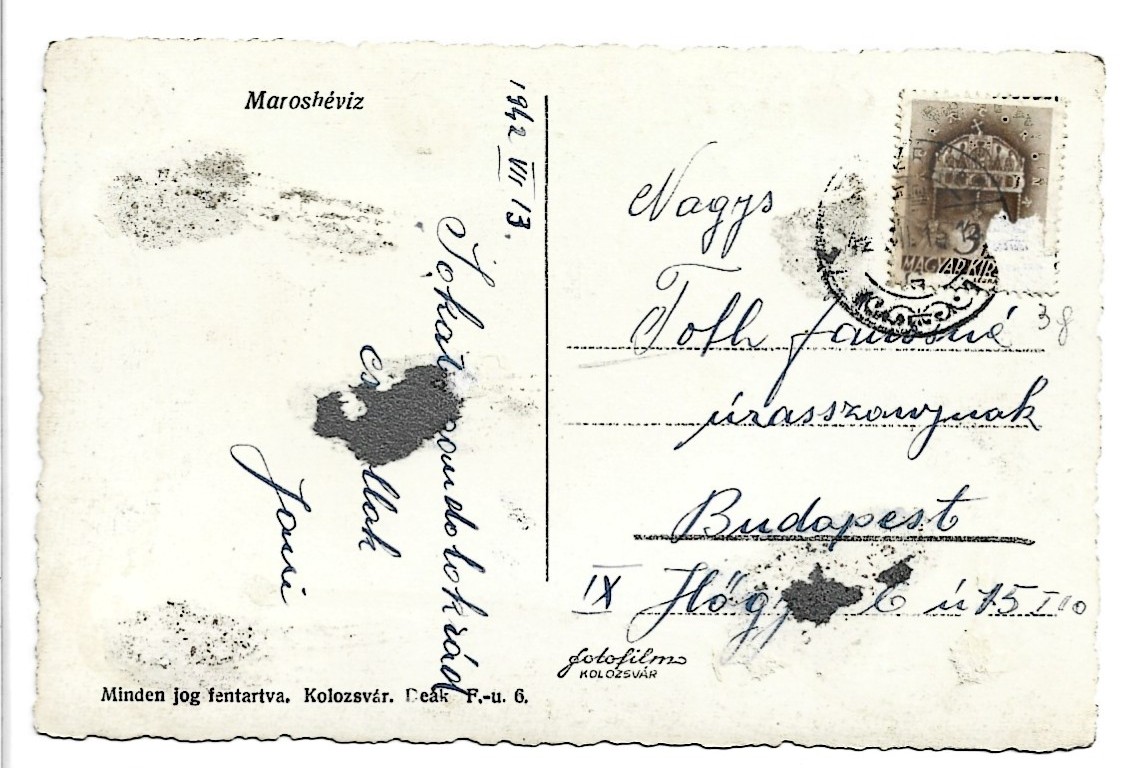 Maroshéviz
1942 VII 13.
Sokat gondolok rád
llak
Jani
Nagys
Toth Jánosné
úrasszonynak
Budapest
IX Hőgy ú 15 I 10
3
MAGYAR KIR
38
fotofilm
KOLOZSVÁR
Minden jog fentartva. Kolozsvár. Deák F.-u. 6.